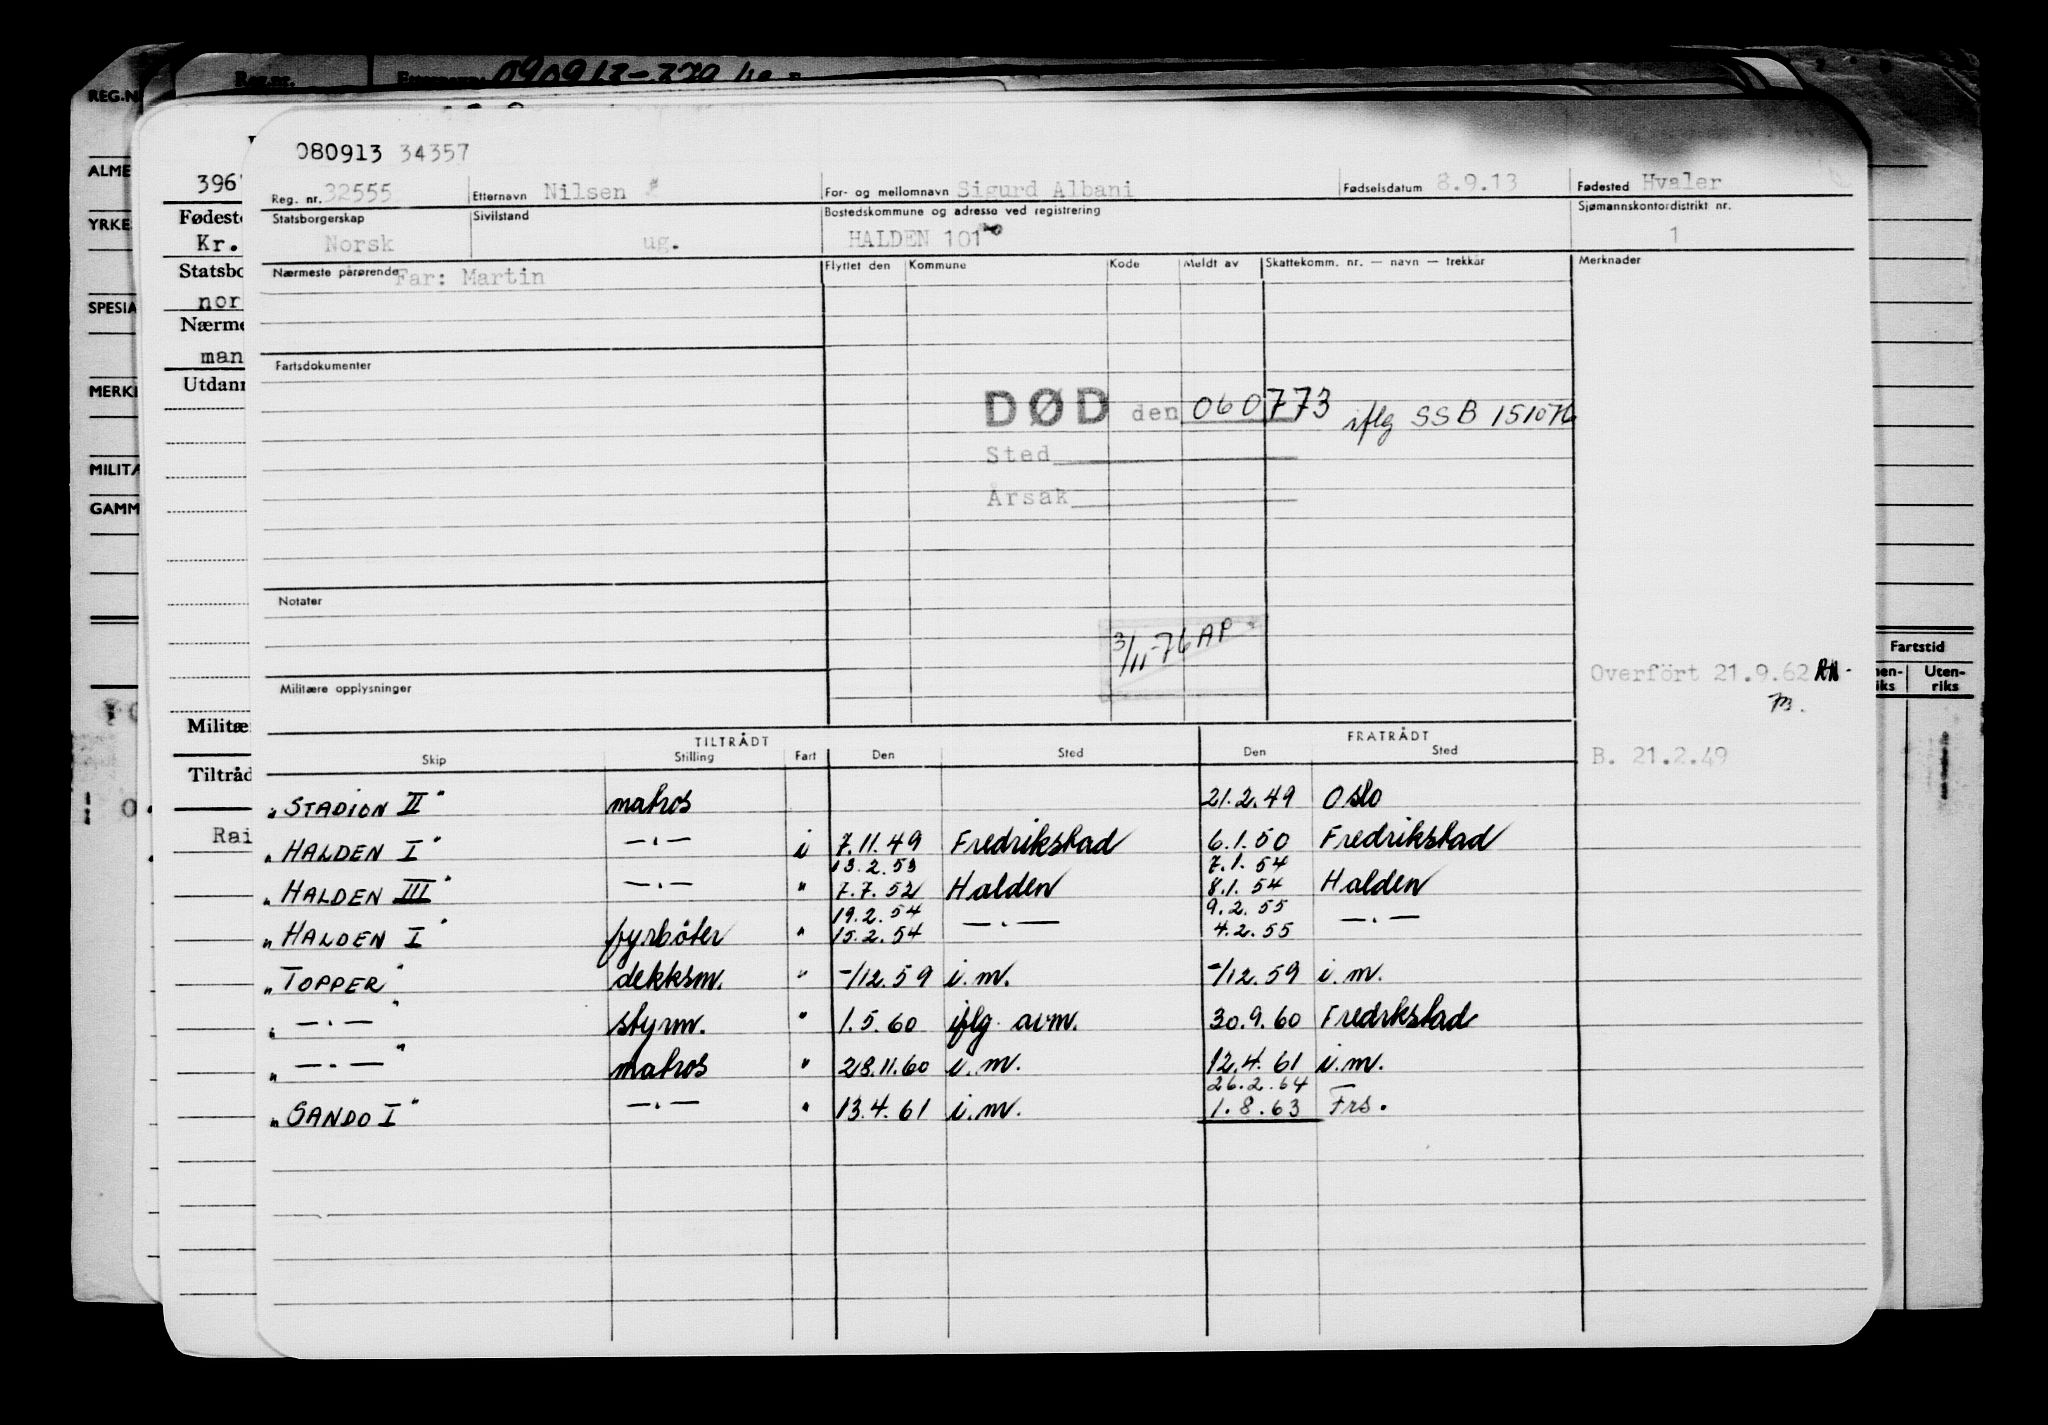 Reg.nr.
090913-
REG.N
080913 34357
ALME
396
Reg. nr. 32555 Etternavn Nilsen For- og mellomnavn Sigurd Albani Fødselsdatum 8.9.13 Fødested Hvaler
YRKE
Fødeste
Statsborgerskap Sivilstand Bostedskommune og adresse ved registrering Sjømannskontordistrikt nr.
Kr. Norsk ug. HALDEN 101 1
Statsbo Nærmeste pårørende Far: Martin Flyttet den Kommune Kode Meldt av Skattekomm. nr. — navn — trekkår Merknader
SPESIA nor
Nærme
man
Fartsdokumenter
MERK Utdann
DØD den 060773 iflg SSB 151076
Sted
MILITÆ
Årsak
GAMM
Notater
3/11-76 AP
Fartstid
Overført 21.9.62
Uten-
riks
Militære opplysninger
Militæ
TILTRÅDT FRATRÅDT
Skip Stilling Fart Den Sted Den Sted
B. 21.2.49
Tiltråd
"STADION II" matros 21.2.49 Oslo
Rai
"HALDEN I" —.— i 7.11.49 Fredrikstad 6.1.50 Fredrikstad
13.2.53 7.1.54
"HALDEN III" —.— " 7.7.52 Halden 8.1.54 Halden
19.2.54 9.2.55
"HALDEN I" fyrbøter " 15.2.54 —.— 4.2.55 —.—
"TOPPER" dekksm. " -/12.59 i.m. -/12.59 i.m.
"—.—" styrm. " 1.5.60 iflg. avm. 30.9.60 Fredrkstad
"—.—" matros " 28.11.60 i.m. 12.4.61 i.m.
26.2.64
"SANDO I" —.— " 13.4.61 i.m. 1.8.63 Frs.